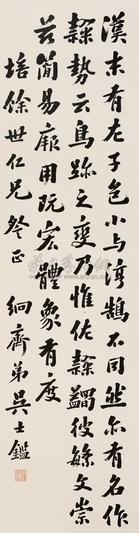 漢末有左子邑小与淳鵲不同然亦有名作
隸勢云鳥跡之變乃惟佐隸蠲彼繁文崇
茲簡易廠用既宏體象有度
培餘世仁兄詧正 絅齋弟吳士鑑